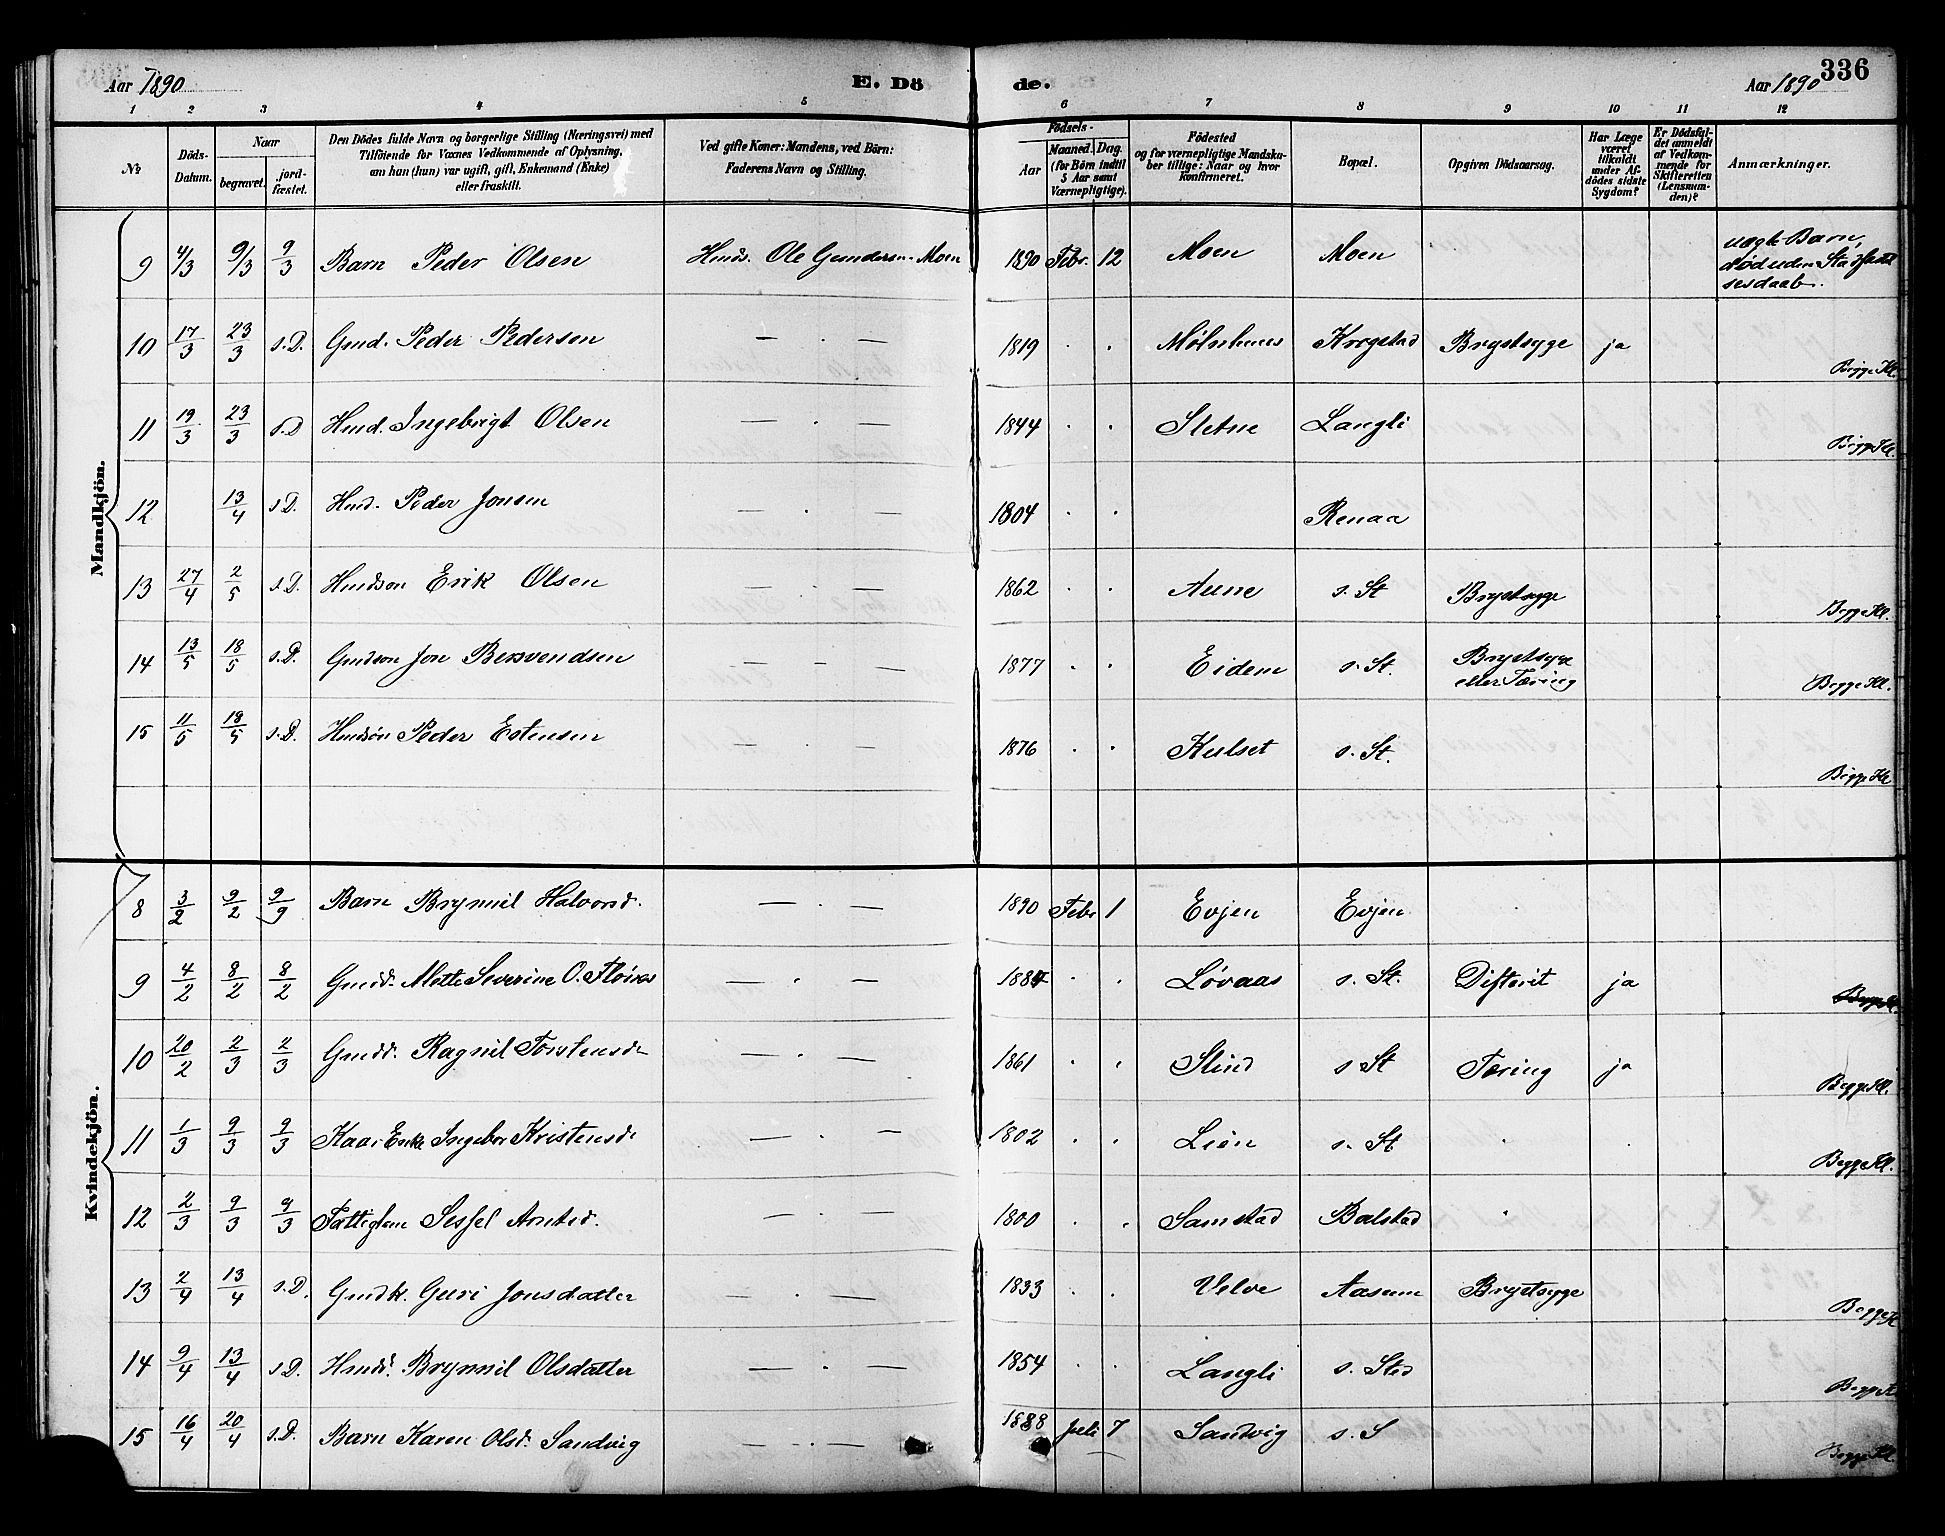 336
Aar 1890 E. Dö de. Aar 1890
1 2 3 4 5 6 7 8 9 10 11 12
№ Döds-Datum. Naar begravet. jordfæstet. Den Dödes fulde Navn og borgerlige Stilling (Næringsvei) med Tilföiende for Voxnes Vedkommende af Oplysning, om han (hun) var ugift, gift, Enkemand (Enke) eller fraskilt. Ved gifte Koner: Mandens, ved Börn: Faderens Navn og Stilling. Födsels- Aar Maaned. Dag. (for Börn indtil 5 Aar samt Værnepligtige). Födested og for værnepligtige Mandskaber tillige: Naar og hvor konfirmeret. Bopæl. Opgiven Dödsaarsag. Har Læge været tilkaldt under Afdödes sidste Sygdom? Er Dödsfaldet anmeldt af Vedkommende for Skifteretten (Lensmanden)? Anmærkninger.
Mandkjön.
9 4/3 9/3 9/3 Barn Peder Olsen Hmds. Ole Gundersen Moen 1890 Febr. 12 Moen Moen uægte Barn, død uden Stadfæstelsesdaab.
10 17/3 23/3 s.D. Gmd. Peder Pedersen — · — 1819 · · Mølnhuus Krogstad Brystsyge ja Begge Kl.
11 19/3 23/3 s.D Hmd. Ingebrigt Olsen — · — 1844 · · Sletne Langli Begge Kl.
12 13/4 s.D. Hmd. Peder Jonsen — · — 1804 · · Renaa
13 27/4 2/5 s.D. Hmdson Erik Olsen — · — 1862 · · Aune s. St Brystsyge Begge Kl.
14 13/5 18/5 s.D. Gmdson Jon Bersvendsen — · — 1877 · · Eidem s. St. Brystsyge eller Tæring Begge Kl.
15 11/5 18/5 s.D. Hmdsön Peder Estensen — · — 1876 · · Kulset s. St. Begge Kl
Kvindekjön.
8 3/2 9/2 9/9 Barn Brynnil Halvorsd. — · — 1890 Febr 1 Evjen Evjen ·
9 4/2 8/2 8/2 Gmdd. Mette Severine O. — · — 1884 · · Løvaas s. St. Difterit ja Begge Kl.
10 20/2 2/3 2/3 Gmdd. Ragnil Torstensd — · — 1861 · · Slind s St Tæring ja Begge Kl.
11 1/3 9/3 9/3 Kaar Enke Ingebor Kristensd — · — 1802 · · Lien s. St · · Begge Kl.
12 2/3 9/3 9/3 Fattiglem Sessel Arntsd. — · — 1800 · Samstad Balstad ·
13 2/4 13/4 s.D. Gmdk. Guri Jonsdatter — · — 1833 · · Velve Aasum Brystsyge Begge Kl
14 9/4 13/4 s D. Hmdd. Brynnil Olsdatter — · — 1854 · · Langli s. Sted Begge Kl
15 16/4 20/4 s.D. Barn Karen Olsd. Sandvig — · — 1888 Juli 7 Sandvig s. S Begge Kl.